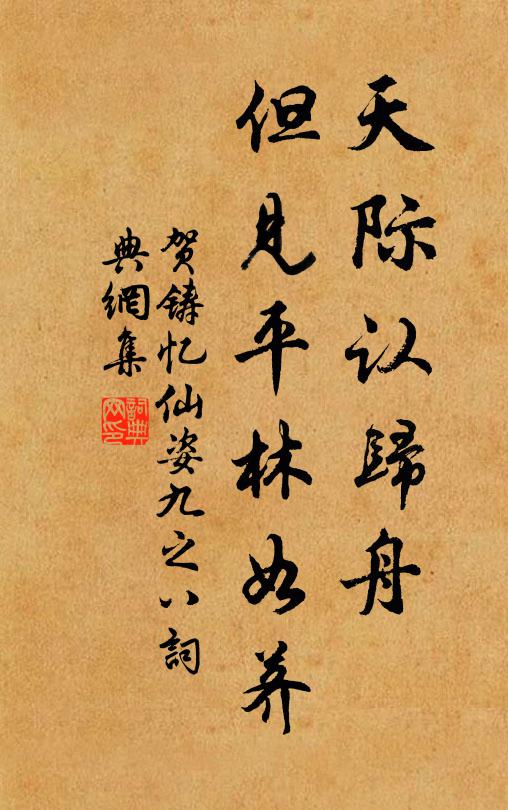 天际认歸舟
但見平林如荠
贺鑄忆仙姿九之八詞
典網集
詞典網印